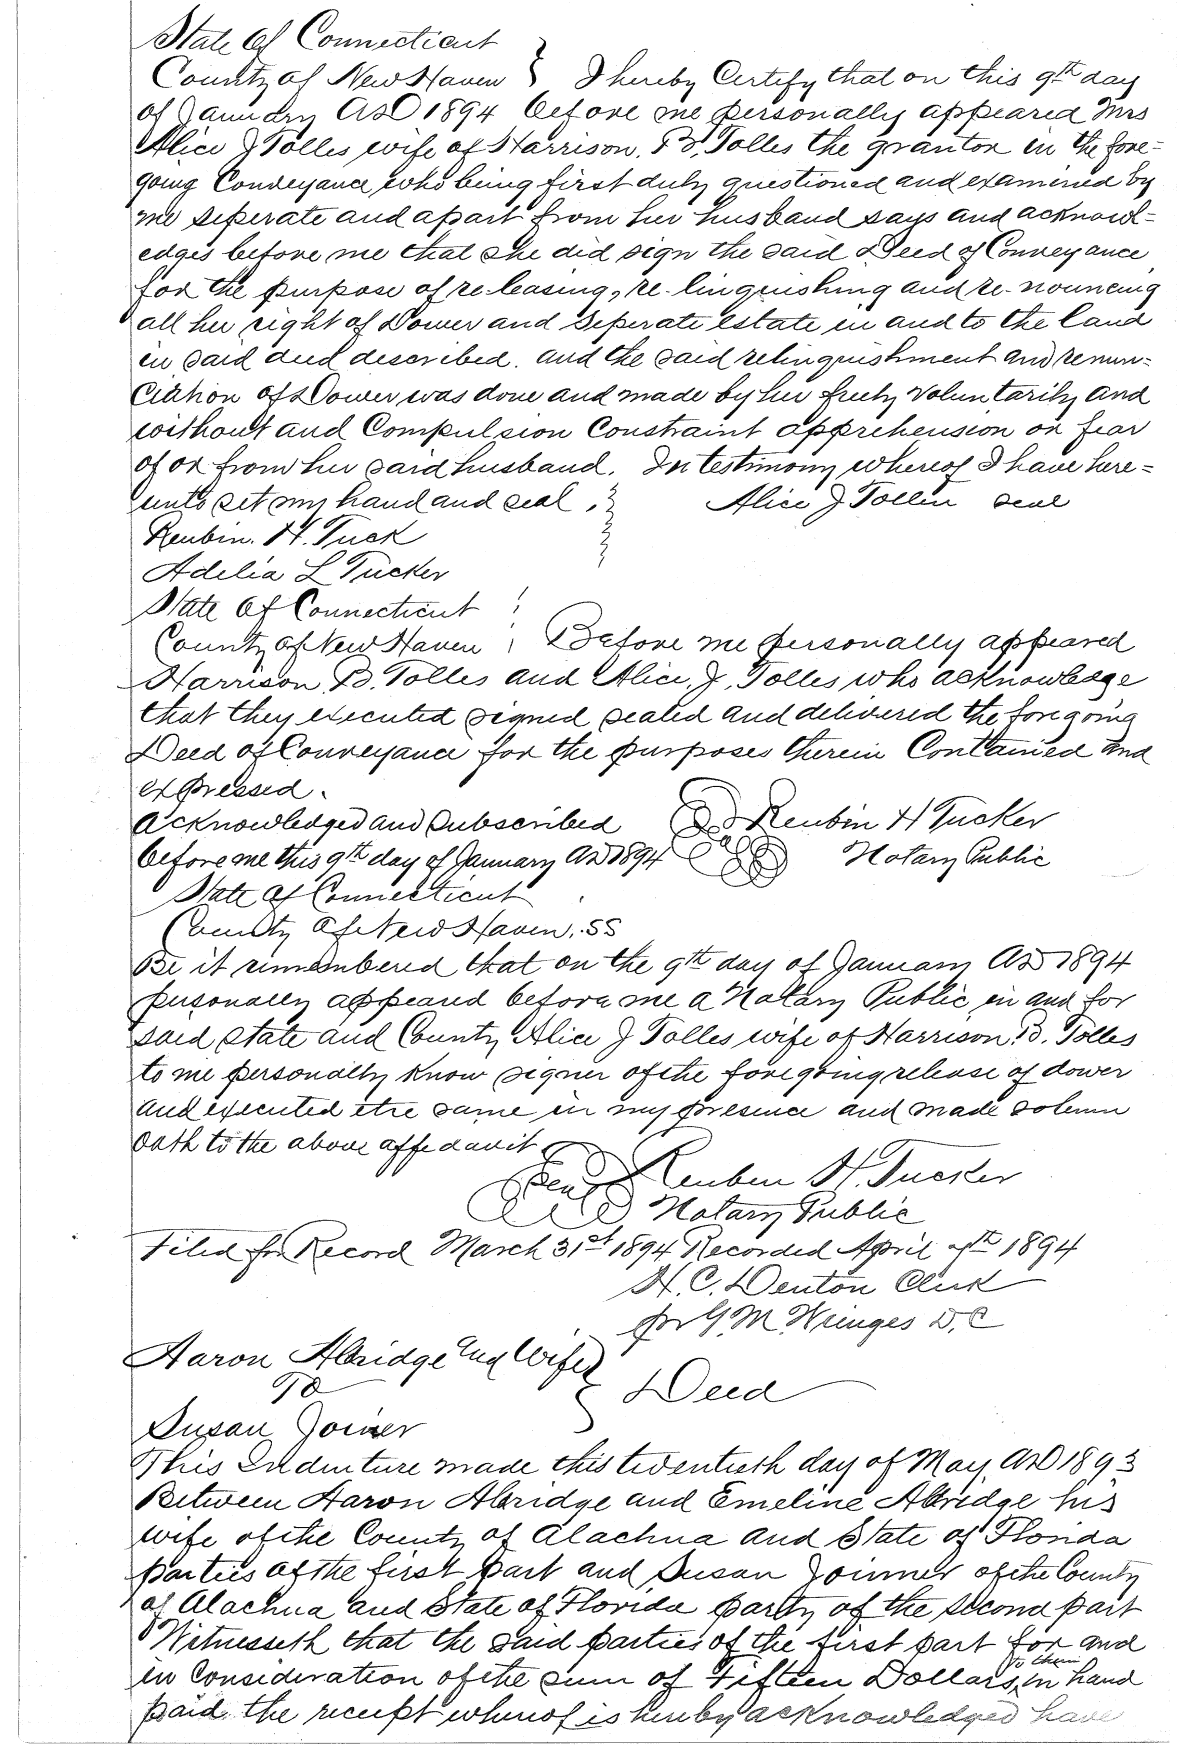 State of Connecticut
County of New Haven } I hereby Certify that on this 9th day
of January AD 1894 before me personally appeared Mrs
Alice J Tolles wife of Harrison. B. Tolles the grantor in the fore=
going Conveyance who being first duly questioned and examined by
me seperate and apart from her husband says and acknowl=
edges before me that she did sign the said Deed of Conveyance
for the purpose of re-leasing, re-linquishing and re-nouncing
all her right of Dower and seperate estate in and to the land
in said deed described. and the said relinquishment and renun=
ciation of Dower was done and made by her freely voluntarily and
without and Compulsion Constraint apprehension or fear
of or from her said husband. In testimony whereof I have here=
unto set my hand and seal. Alice J Tollen seal
Reubin. H. Tuck
Adelia L Tucker
State of Connecticut
County of New Haven Before me personally appeared
Harrison B. Tolles and Alice. J. Tolles who acknowledge
that they executed signed sealed and delivered the foregoing
Deed of Conveyance for the purposes therein Contained and
expressed.
Acknowledged and Subscribed Reubin H Tucker
before me this 9th day of January AD 1894 Seal Notary Public
State of Connecticut
County of New Haven. SS
Be it remembered that on the 9th day of January AD 1894
personally appeard before me a Notary Public in and for
said state and County Alice J Tolles wife of Harrison. B. Tolles
to me personally know signer of the foregoing release of dower
and executed the same in my presence and made solemn
oath to the above affedavit
Seal Reuben H. Tucker
Notary Public
Filed for Record March 31st 1894 Recorded April 4th 1894
H. C. Denton Clerk
pr G. M. D. C
Aaron Abridge and Wife
To } Deed
Susan Joiner
This Indenture made this twentieth day of May AD 1893
Between Aaron Abridge and Emeline Abridge his
wife of the County of Alachua and State of Florida
parties of the first part and Susan Joinner of the County
of Alachua and State of Florida party of the second part
Witnesseth that the said parties of the first part for and
in Consideration of the sum of Fifteen Dollars, to them in hand
paid. the receipt whereof is hereby acknowledged have